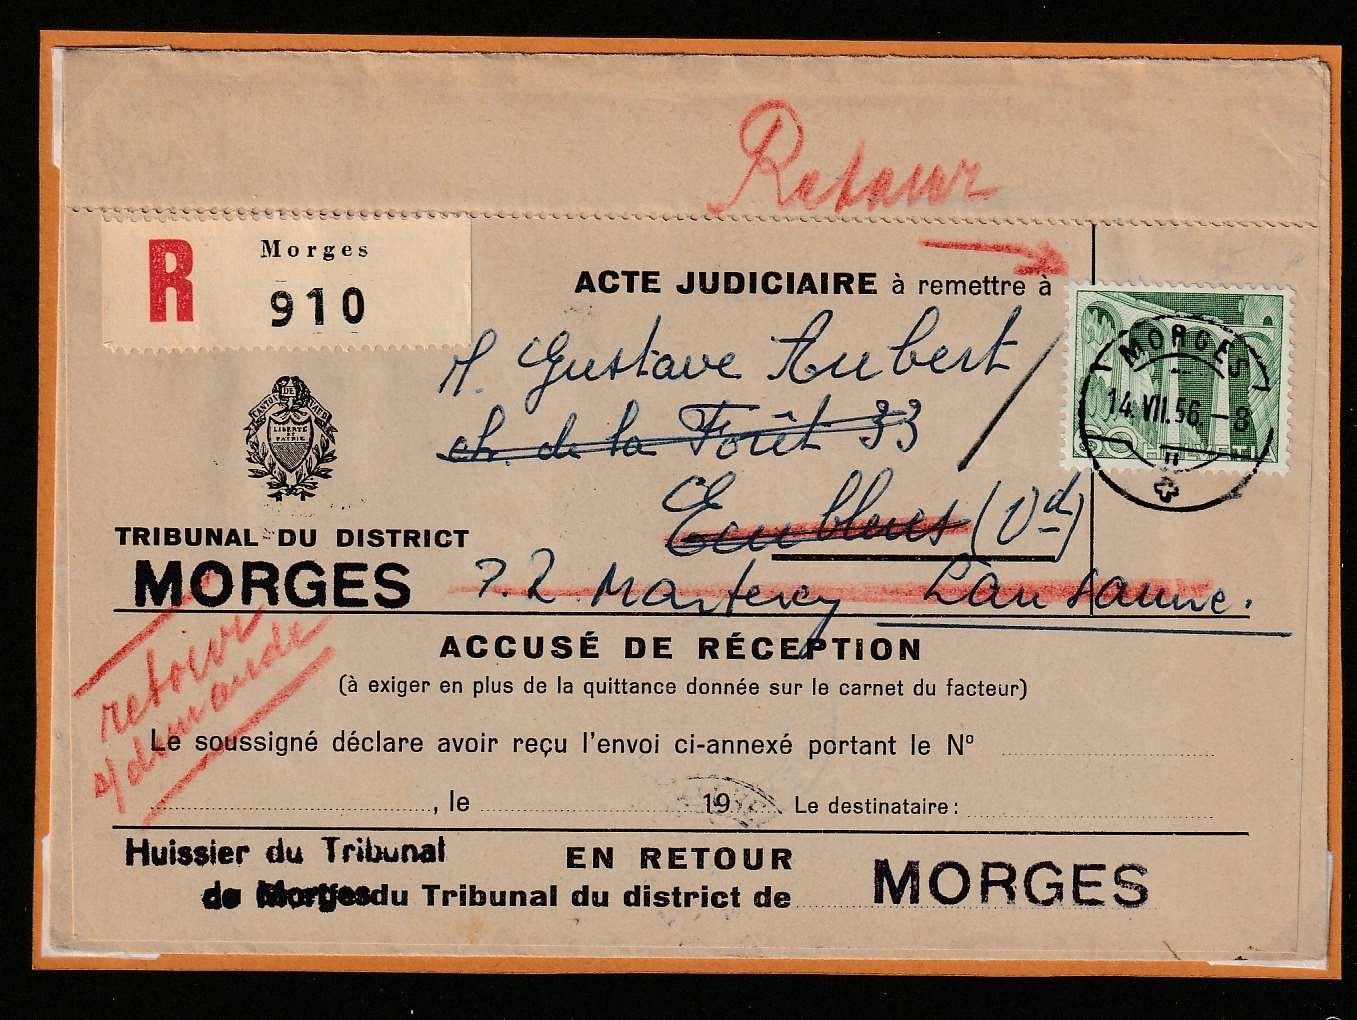 Retour
R
Morges
910
ACTE JUDICIAIRE à remettre à
M. Gustave Aubert
ch. de la Forêt 33
Ecublens (Vd)
72 Marterey Lausanne.
MORGES
14.VII.56.-8
60 HELVETIA
CANTON DE VAUD
LIBERTÉ
ET
PATRIE
TRIBUNAL DU DISTRICT
MORGES
retour
s/demande
ACCUSÉ DE RÉCEPTION
(à exiger en plus de la quittance donnée sur le carnet du facteur)
Le soussigné déclare avoir reçu l'envoi ci-annexé portant le Nº
, le 19 Le destinataire:
Huissier du Tribunal EN RETOUR
de Morges du Tribunal du district de MORGES